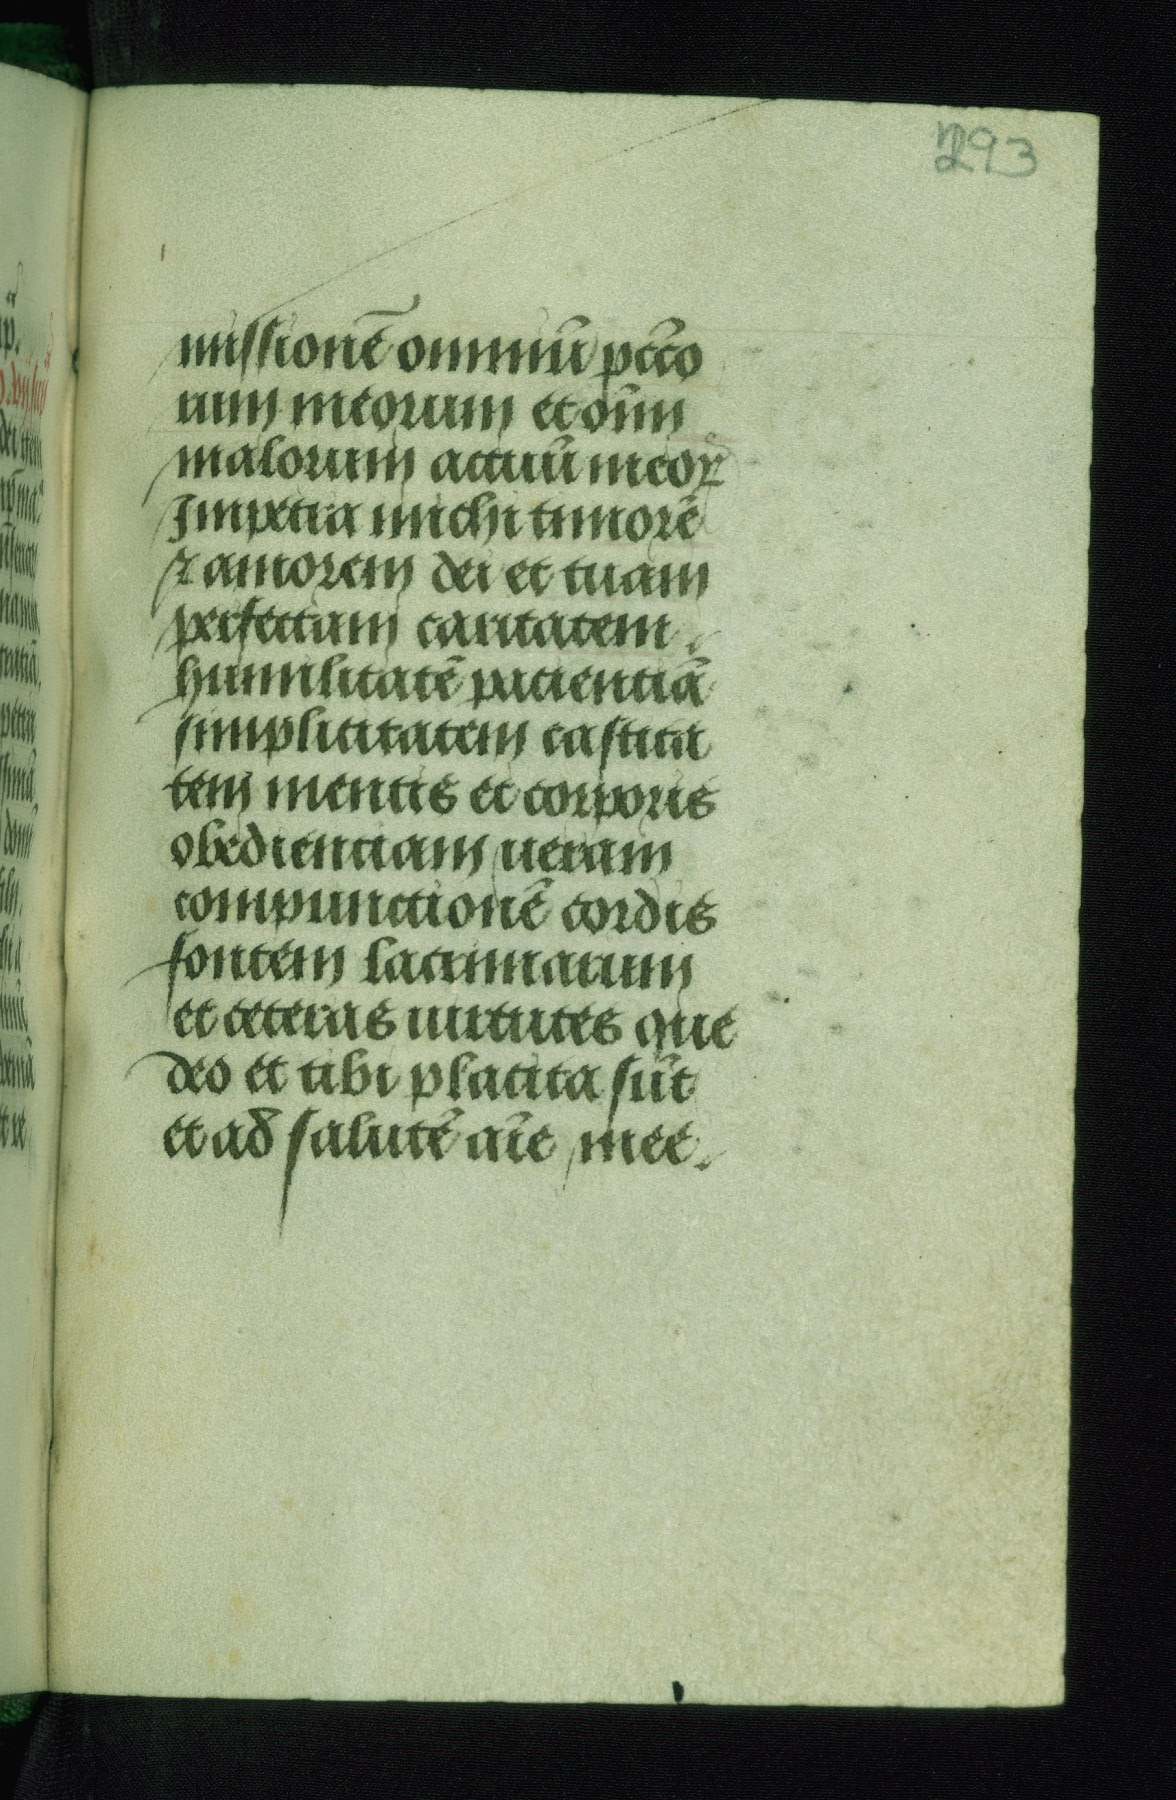 293
missionē omniū pctō
rum meorum et oīm
malorum actuū meoꝝ
Impetra michi timorē
⁊ amorem dei et tuam
perfectam caritatem.
humilitatē pacientiā
simplicitatem castita
tem mentis et corporis
obedienciam ueram
compunctionē cordis
fontem lacrimarum
et ceteras uirtutes que
deo et tibi placita sūt
et ad salutē aīe mee.